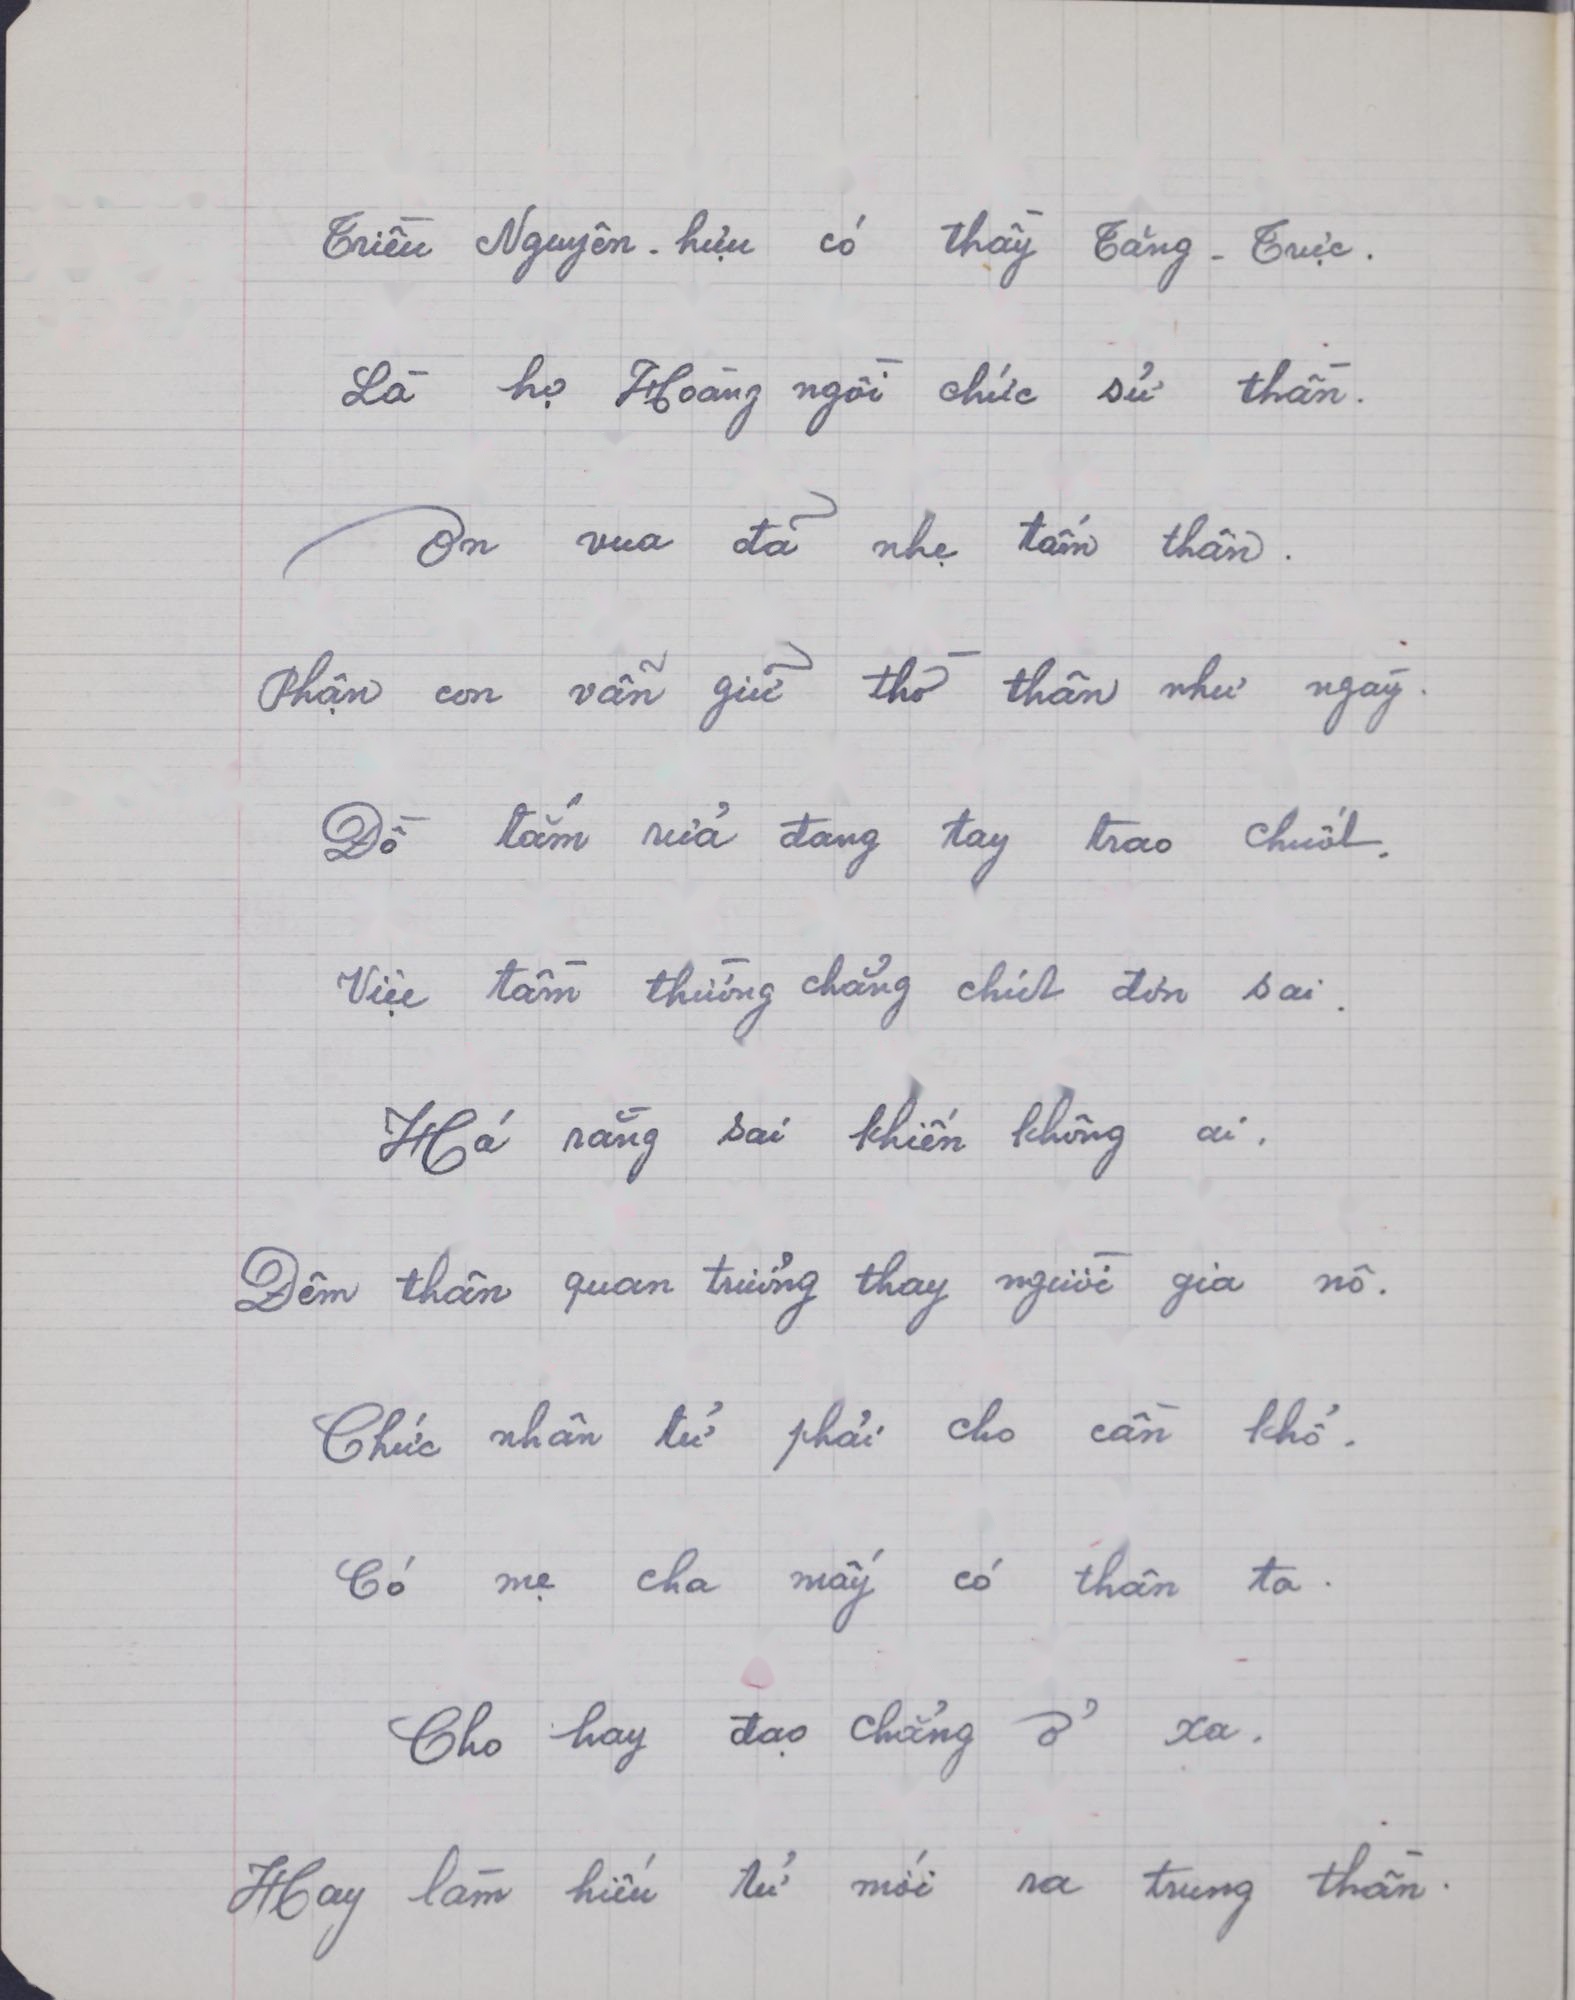 Triều Nguyên-hựu có thầy Tăng-Trực.
Là họ Hoàng ngôi chức sử thần.
Ơn vua đã nhẹ tấm thân.
Phận con vẫn giữ thờ thân như ngày.
Đồ tắm rửa đang tay trao chuốt.
Việc tầm thường chẳng chút đơn sai.
Há rằng sai khiến không ai.
Đêm thân quan trưởng thay người gia nô.
Chức nhân tử phải cho cần khổ.
Có mẹ cha mấy có thân ta.
Cho hay đạo chẳng ở xa.
Hay làm hiếu tử mới ra trung thần.